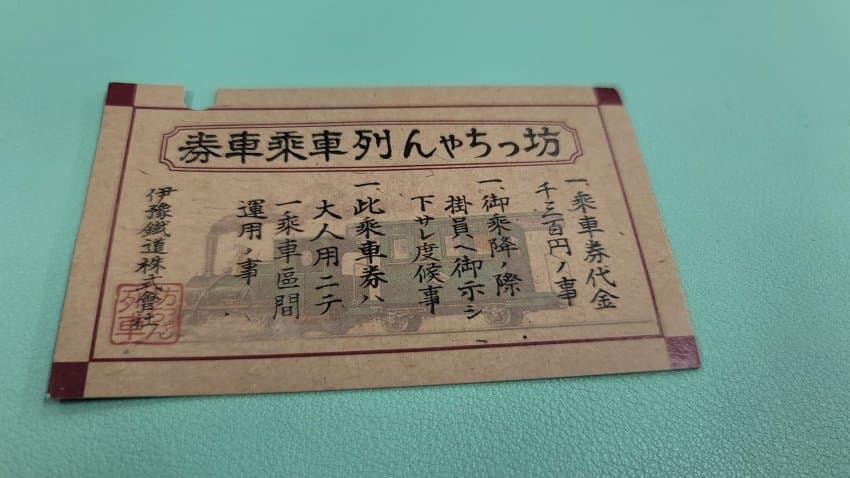 坊っちゃん列車乗車券
一、乗車券代金
千三百円ノ事
一、御乗降ノ際
掛員ヘ御示シ
下サレ度候事
一、此乗車券ハ
大人用ニテ
一乗車區間
運用ノ事
伊豫鐵道株式會社
坊っちゃん
列車